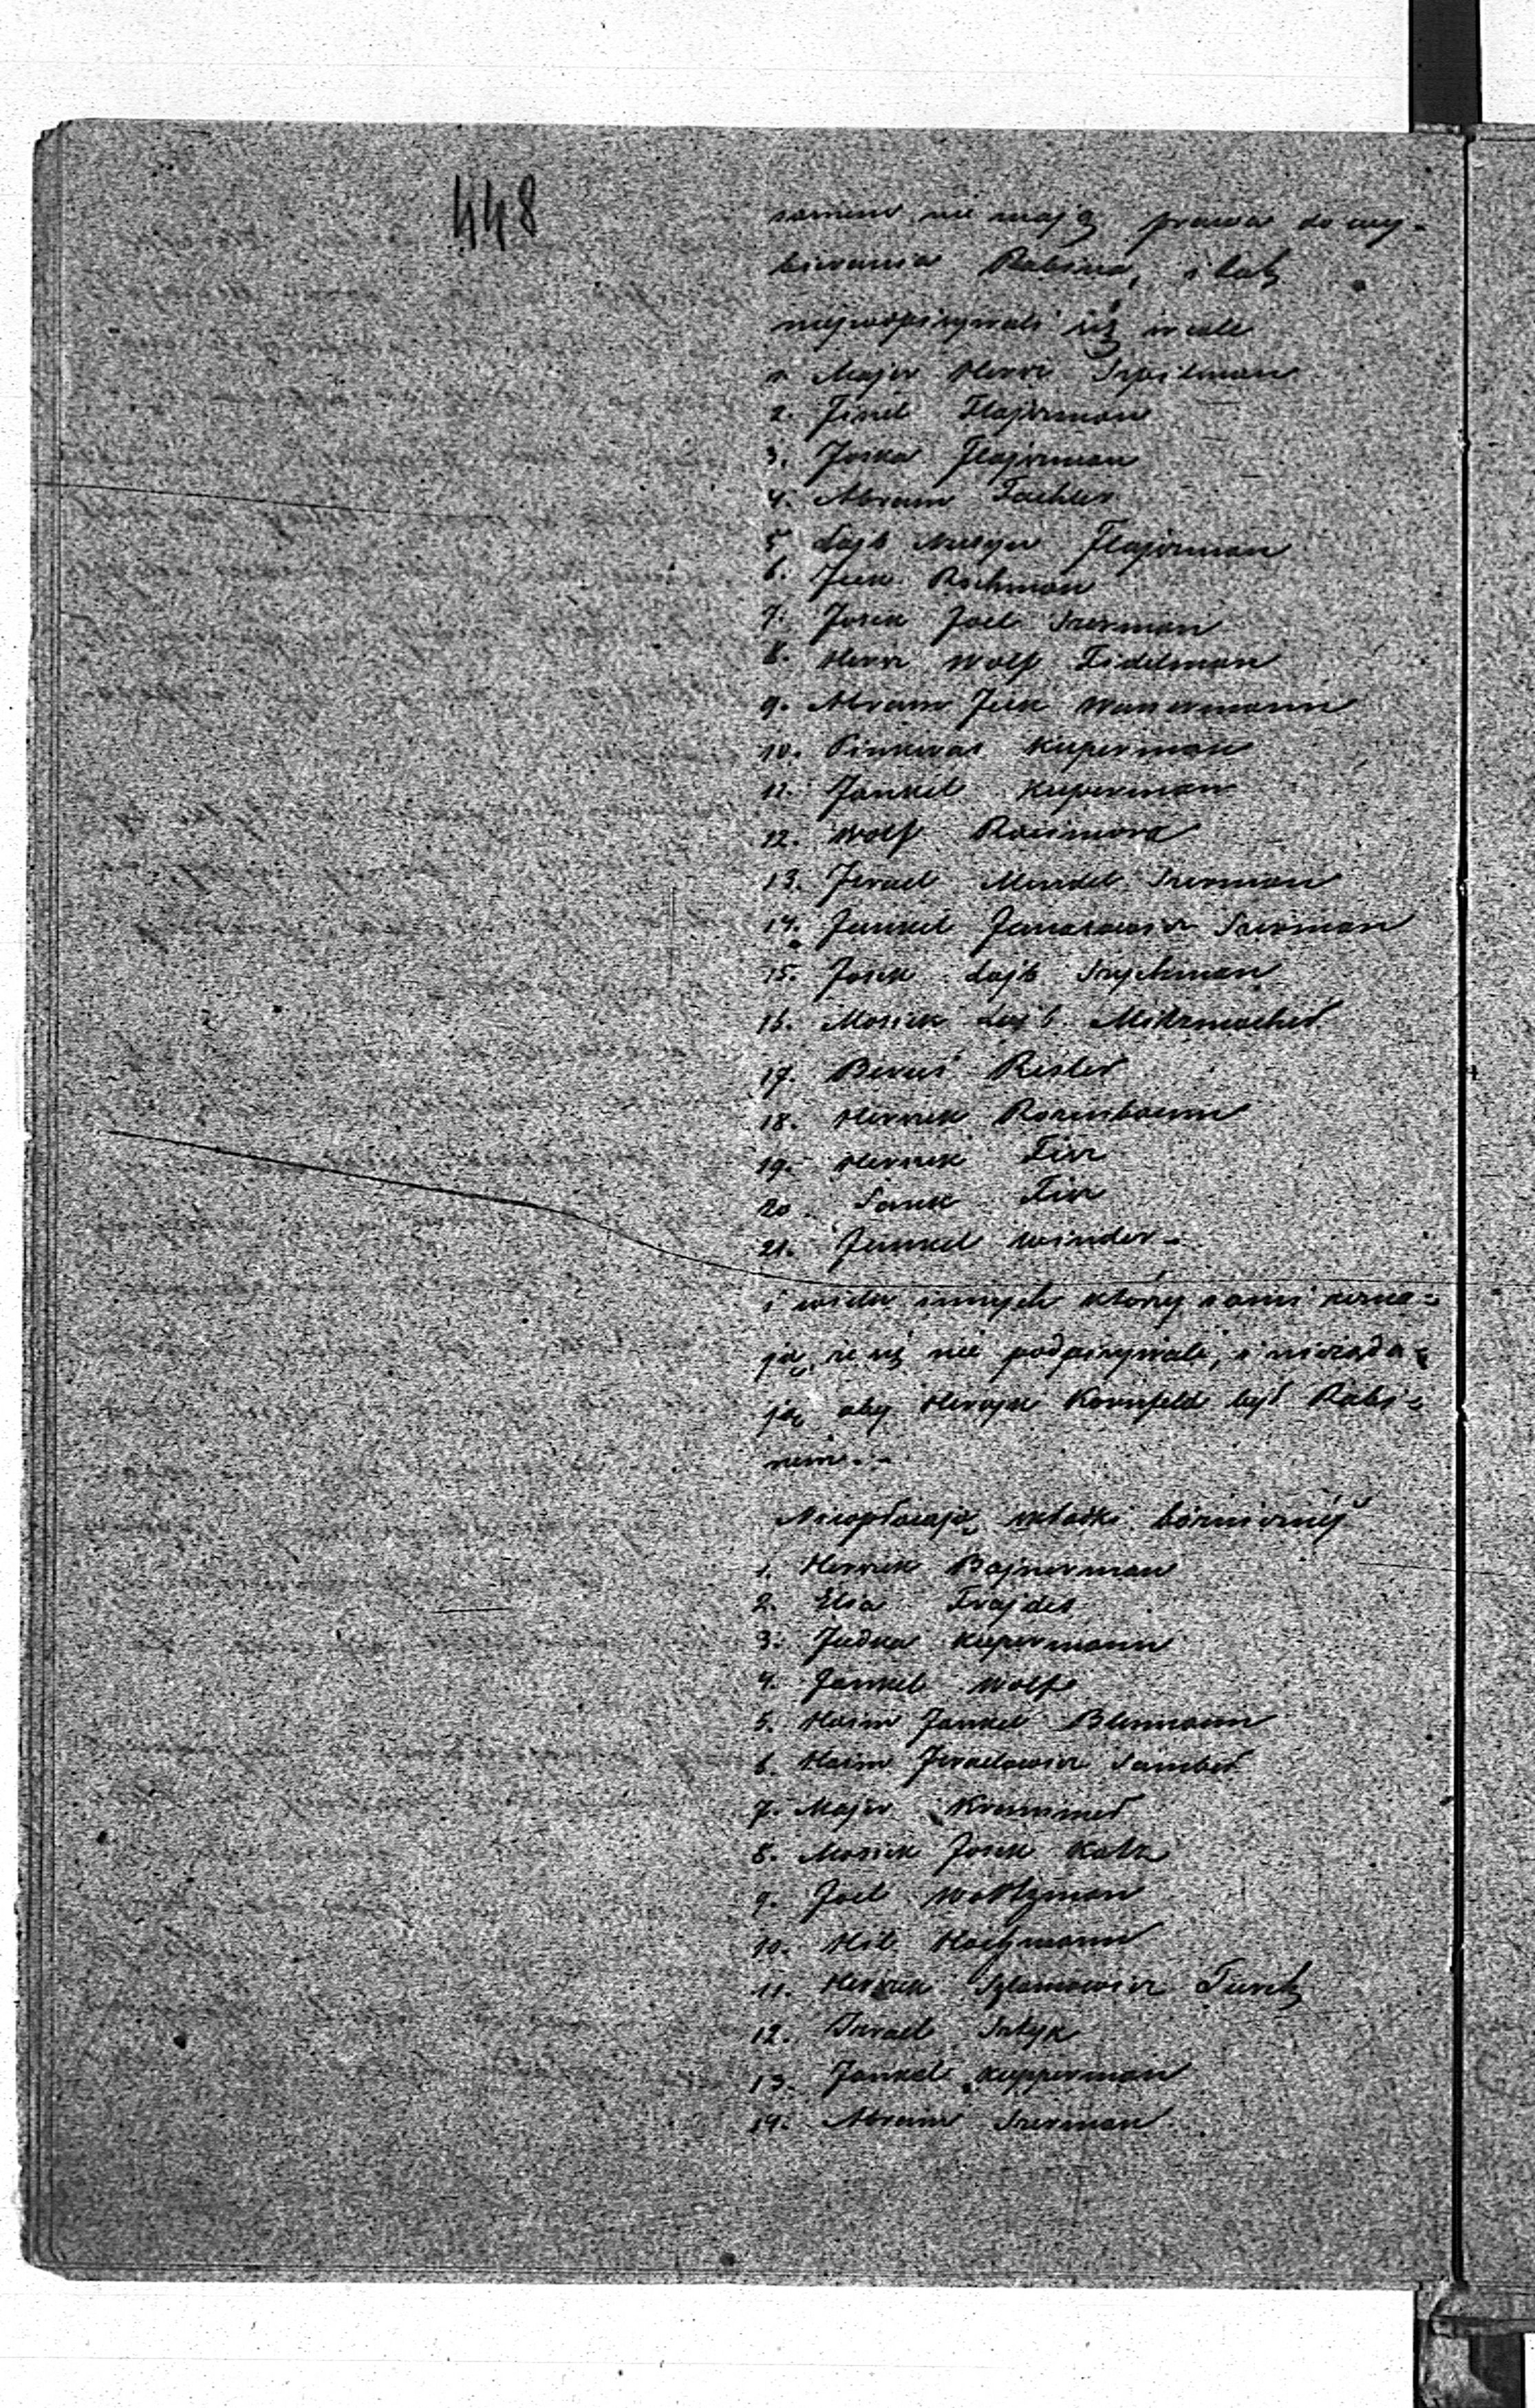 448
samem nie mają prawa do wy-
bierania Rabina, i tak
niepodpisywali się wcale
1. Majer Herszs Szpilman
2. Fisiel Flajszman
3. Joska Flajszman
4. Abram Tachler
5. Lajb Flajszman
6. Icek Rochman
7. Josek Joel Szerman
8. Hersz Wolf Zidelman
9. Abram Icek Wasserman
10. Pinkwas Kuperman
11. Jankel Kuperman
12. Wolf
13. Izrael Mendel Szerman
14. Jankel Szerman
15. Josek Lajb Szychman
16. Mosiek Lajb Milszmacher
17. Berus Rister
18. Herszek Rozenbaum
19. Herszek Fisz
20. Fisz
21. Jankel Winder -
i wielu innych którzy sami zezna-
ją, że się nie podpisywali, i nieżąda-
ją aby Herszyk Kornfeld był Rabi-
nem. -
Nieopłacają składki bóżnicznéj
1. Herszek Bajnerman
2. Elia Frajdes
3. Judka Kupermann
4. Jankel Wolf
5. Haim Jankel
6. Haim Izraelowicz Sander
7. Majer Krammer
8. Mosiek Josek Katz
9. Joel Woltzman
10. Hil Hochmann
11. Herszek Szlamowicz Turek
12. Izrael Sztyk
13. Jankel Kupperman
14. Abram Szerman